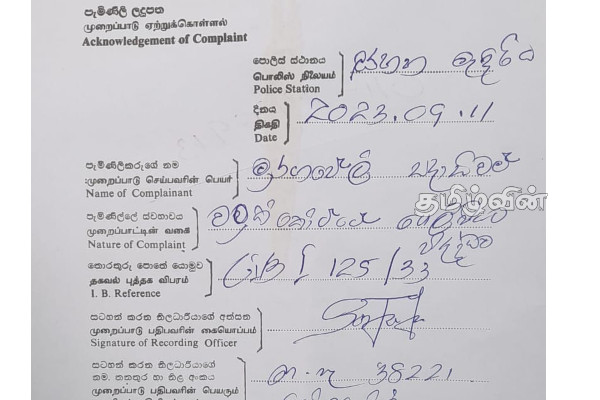 පැමිණිලි ලදුපත
முறைப்பாடு ஏற்றுக்கொள்ளல்
Acknowledgement of Complaint
පොලිස් ස්ථානය
பொலிஸ் நிலையம்
Police Station
දිනය
திகதி
Date
2023.09.11
පැමිණිලිකරුගේ නම
முறைப்பாடு செய்பவரின் பெயர்
Name of Complainant
தமிழ்வின்
පැමිණිල්ලේ ස්වභාවය
முறைப்பாட்டின் வகை
Nature of Complaint
තොරතුරු පොතේ යොමුව
தகவல் புத்தக விபரம்
I. B. Reference
I 125/33
සටහන් කරන නිලධාරියාගේ අත්සන
முறைப்பாடு பதிபவரின் கையொப்பம்
Signature of Recording Officer
සටහන් කරන නිලධාරියාගේ
නම, තනතුර හා නිළ අංකය
முறைப்பாடு பதிபவரின் பெயரும்
38221